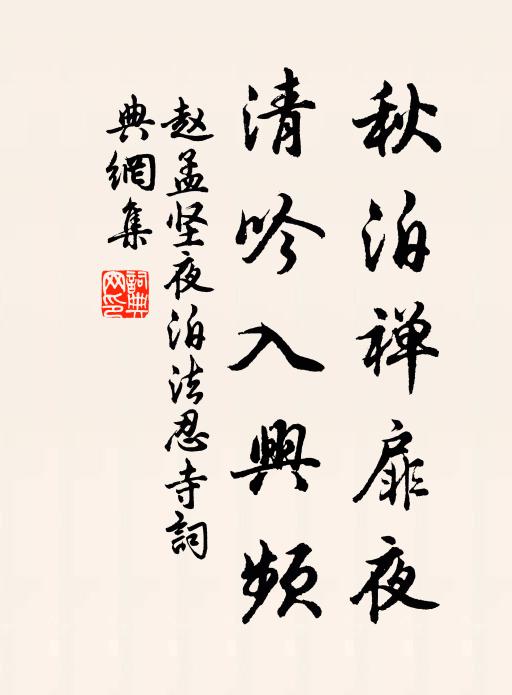 秋泊禅扉夜
清吟入興頻
赵孟坚夜泊法忍寺詞
典網集
詞典
网印